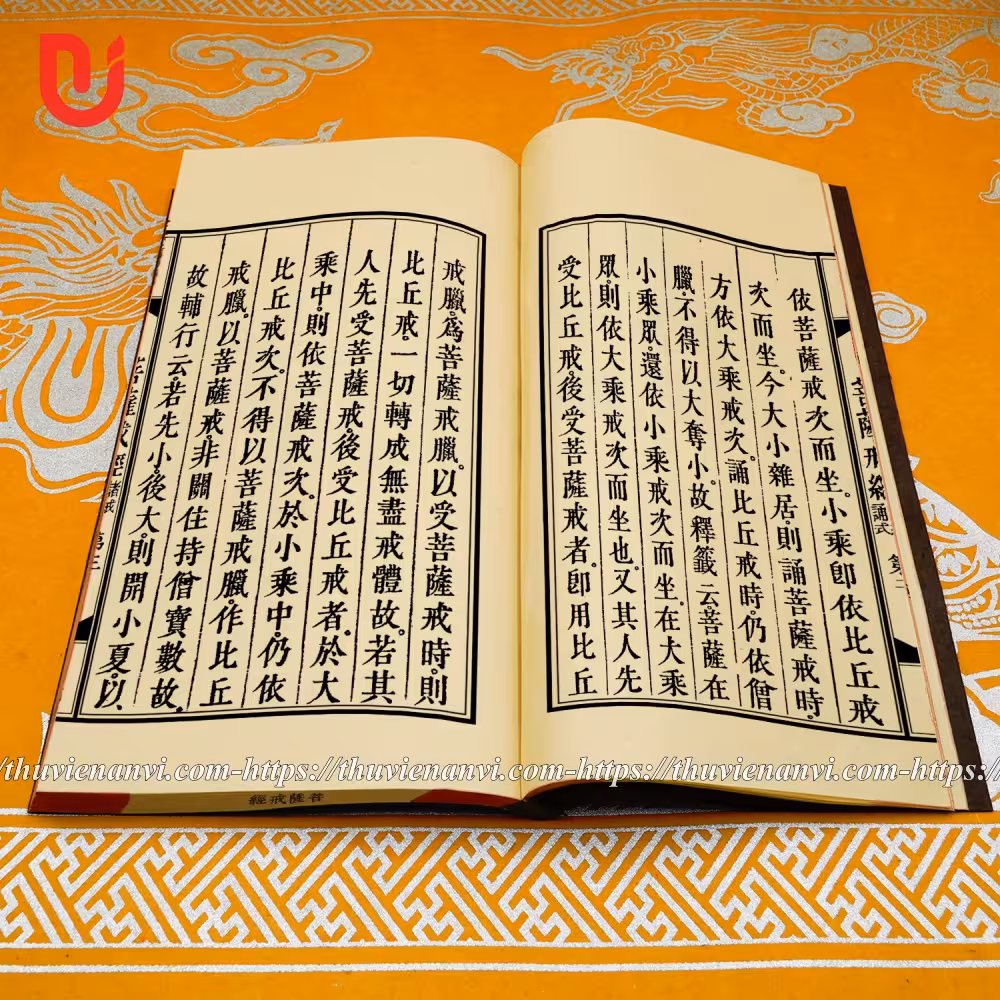 依菩薩戒次而坐。小乘卽依比丘戒
次而坐。今大小雜居。則誦菩薩戒時。
方依大乘戒次。誦比丘戒時。仍依僧
臘。不得以大奪小。故釋籤云。菩薩在
小乘眾。還依小乘戒次而坐。在大乘
眾。則依大乘戒次而坐也。又其人先
受比丘戒。後受菩薩戒者。卽用比丘
戒臘。為菩薩戒臘。以受菩薩戒時。則
比丘戒。一切轉成無盡戒體故。若其
人先受菩薩戒。後受比丘戒者。於大
乘中。則依菩薩戒次。於小乘中。仍依
比丘戒次。不得以菩薩戒臘。作比丘
戒臘。以菩薩戒。非關住持僧寶數故。
故輔行云。若先小。後大。則開小夏。以
誦式
菩薩戒經
https://thuvienanvi.com-https://thuvienanvi.com-https://thuvienanvi.com-https:/